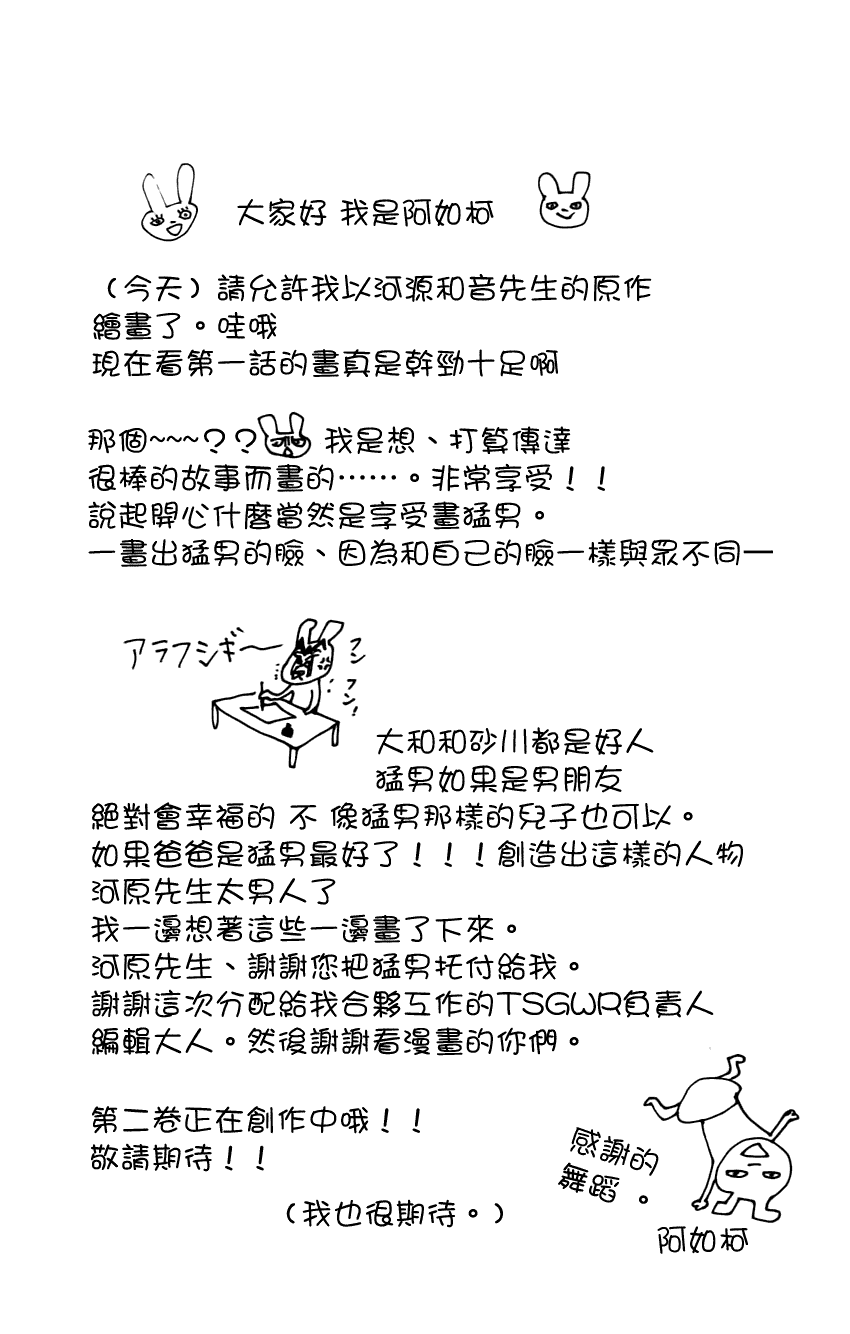 大家好 我是阿如柯
（今天）請允許我以河源和音先生的原作
繪畫了。哇哦
現在看第一話的畫真是幹勁十足啊
那個~~~？？ 我是想、打算傳達
很棒的故事而畫的……。非常享受！！
說起開心什麼當然是享受畫猛男。
一畫出猛男的臉、因為和自己的臉一樣與眾不同一
アラフシギ～
フン
フン！
大和和砂川都是好人
猛男如果是男朋友
絕對會幸福的 不 像猛男那樣的兒子也可以。
如果爸爸是猛男最好了！！！創造出這樣的人物
河原先生太男人了
我一邊想著這些一邊畫了下來。
河原先生、謝謝您把猛男托付給我。
謝謝這次分配給我合夥工作的TSGWR負責人
編輯大人。然後謝謝看漫畫的你們。
第二卷正在創作中哦！！
敬請期待！！
（我也很期待。）
感謝的
舞蹈 。
阿如柯